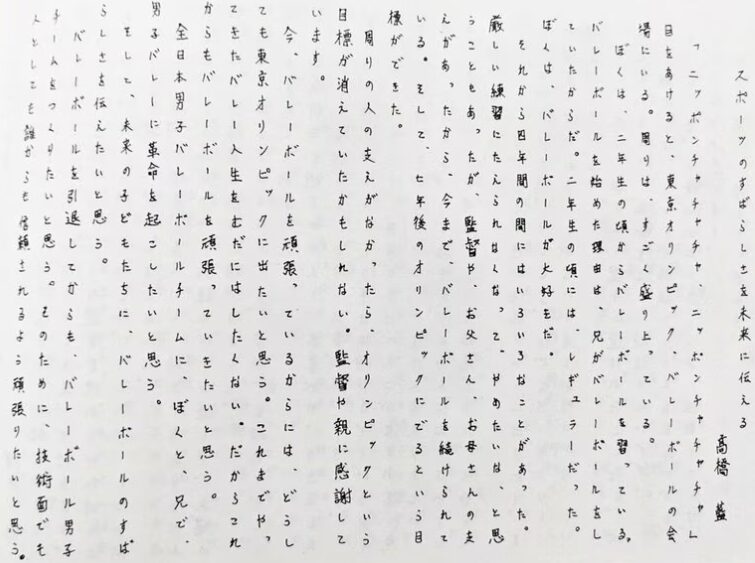 スポーツのすばらしさを未来に伝える
髙橋 藍
「ニッポンチャチャチャ、ニッポンチャチャチャ」
目をあけると、東京オリンピック、バレーボールの会
場にいる。周りは、すごい盛り上っている。
ぼくは、二年生の頃からバレーボールを習っている。
バレーボールを始めた理由は、兄がバレーボールをし
ていたからだ。二年生の頃には、レギュラーだった。
ぼくは、バレーボールが大好きだ。
それから四年間の間にはいろいろなことがあった。
厳しい練習にたえられなくなって、やめたいな、と思
うこともあったが、監督や、お父さん、お母さんの支
えがあったから、今まで、バレーボールを続けられて
いる。そして、七年後のオリンピックにでるという目
標ができた。
周りの人の支えがなかったら、オリンピックという
目標が消えていたかもしれない。監督や親に感謝して
います。
今、バレーボールを頑張っているからには、どうし
ても東京オリンピックに出たいと思う。これまでやっ
てきたバレー人生をむだにはしたくない。だからこれ
からもバレーボールを頑張っていきたいと思う。
全日本男子バレーボールチームに、ぼくと、兄で、
男子バレーに革命を起こしたいと思う。
そして、未来の子どもたちに、バレーボールのすば
らしさを伝えたいと思う。
バレーボールを引退してからも、バレーボール男子
チームをつくりたいと思う。そのために、技術面でも
人としても誰からも信頼されるよう頑張りたいと思う。